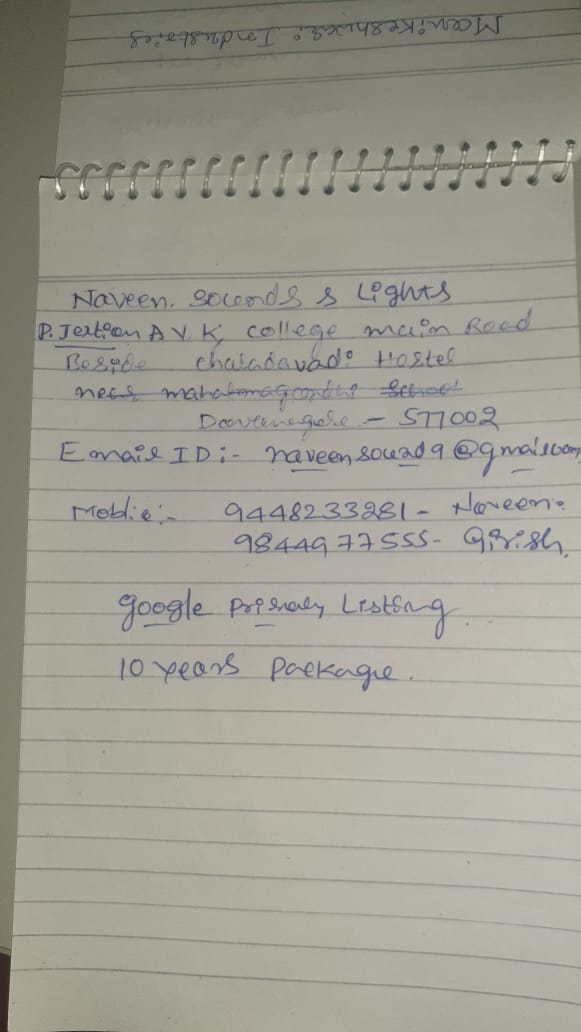 Manikeshwari Industries
Naveen. Sounds & Lights
P.Jextion A V. K, college main Road
Beside chaladavadi Hostel
near mahatmagandhi School
Davanagere - 577002
Email ID :- naveensound9@gmail.com
Moblie :- 9448233281 - Naveen.
9844977555 - Girish,
google Primary Listing.
10 years Package.